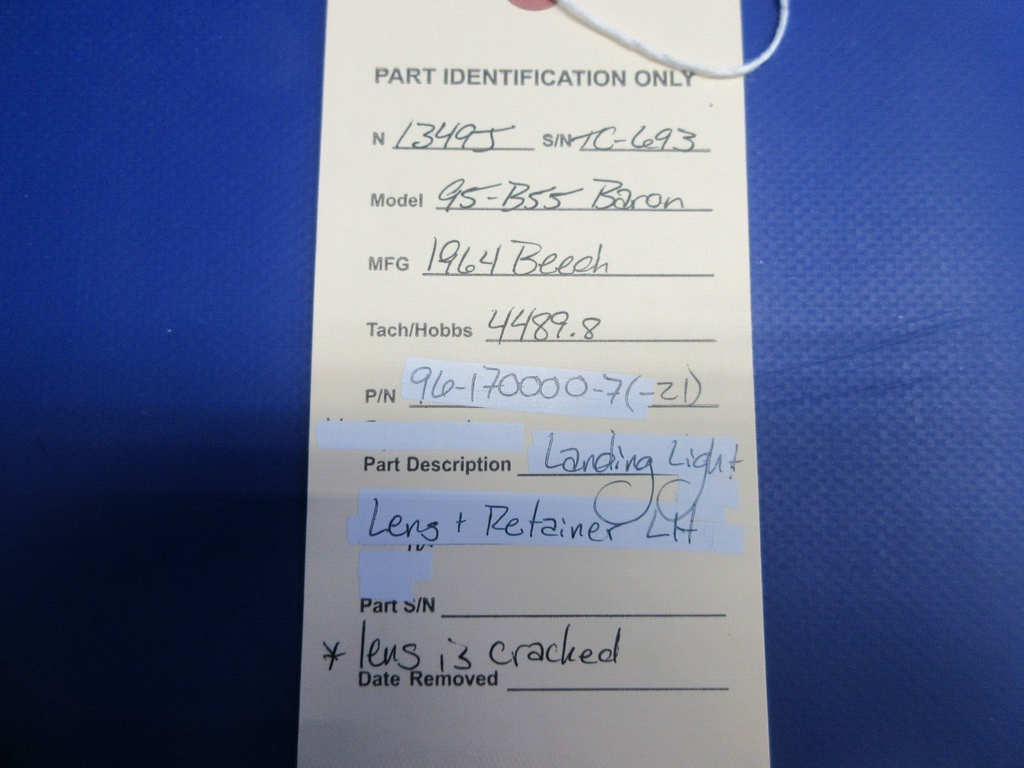 PART IDENTIFICATION ONLY
N 1349J S/N TC-693
Model 95-B55 Baron
MFG 1964 Beech
Tach/Hobbs 4489.8
P/N 96-170000-7(-21)
Part Description Landing Light
Lens + Retainer LH
Part S/N
* lens is cracked
Date Removed